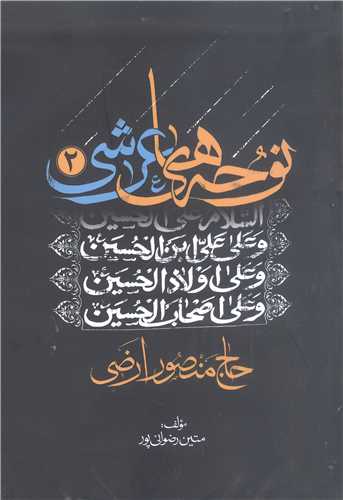 نوحه‌های عرشی ۲
السلام علی الحسین
و علی علی ابن الحسین
و علی اولاد الحسین
و علی اصحاب الحسین
حاج منصور ارضی
مؤلف:
متین رضوانی‌پور